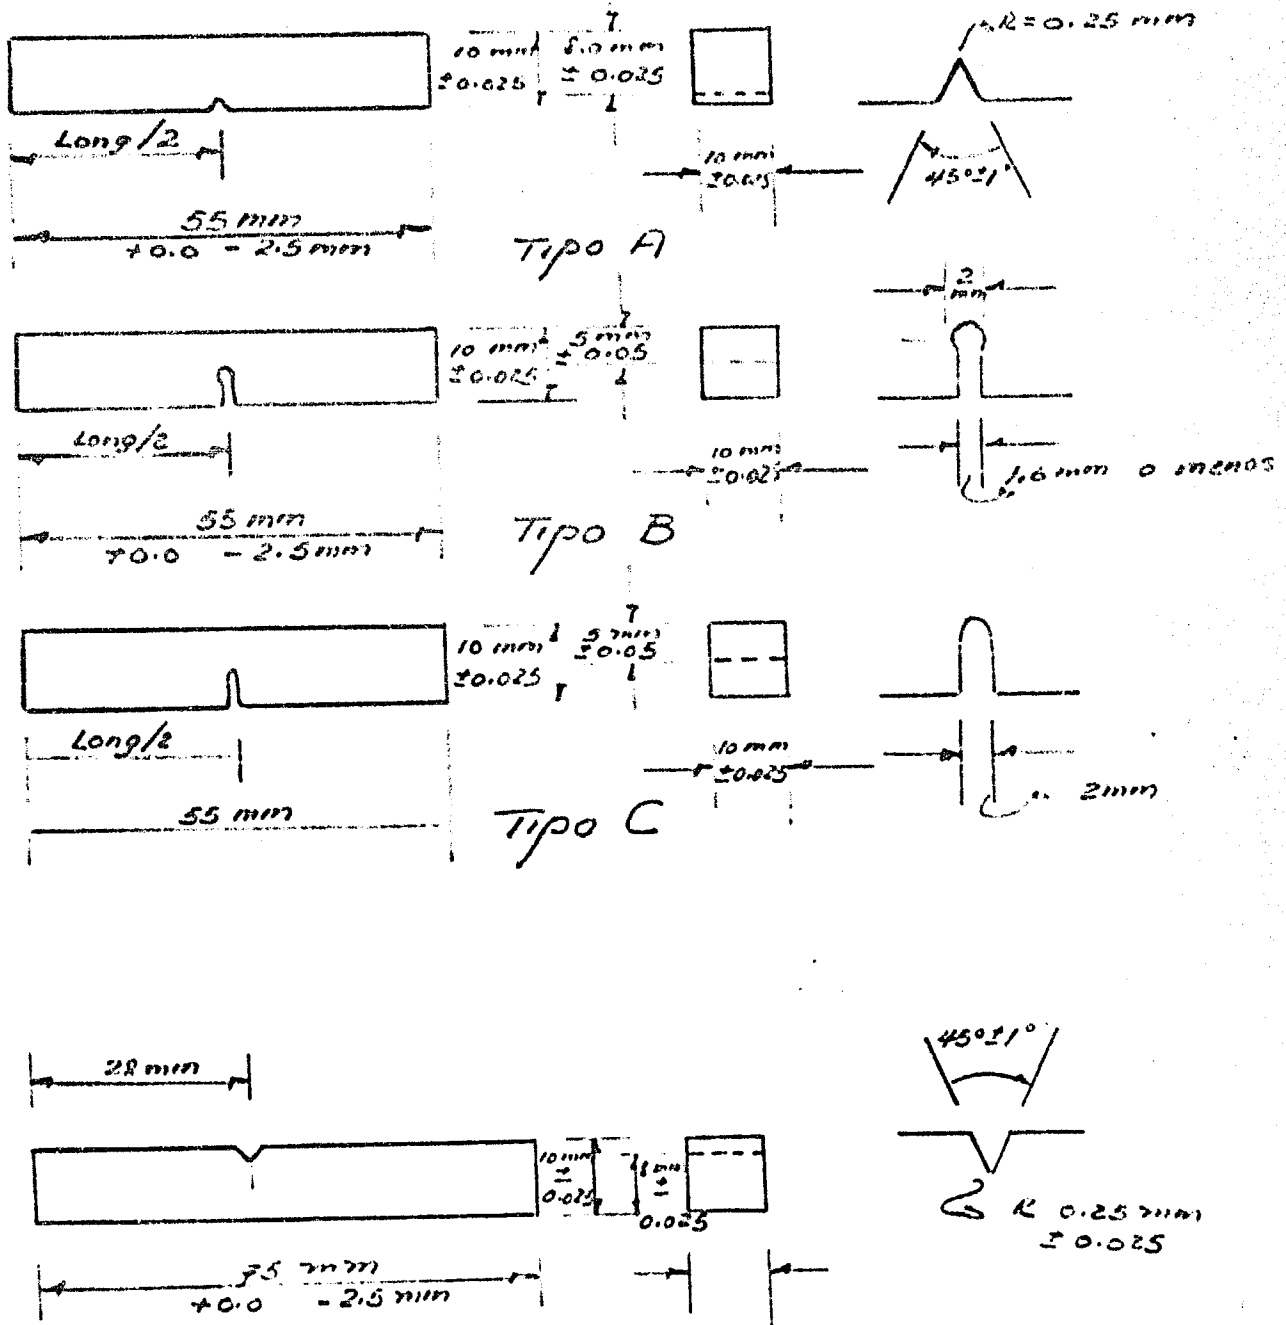 R=0.25 mm
10 mm
±0.025
8.0 mm
± 0.025
Long/2
10 mm
±0.025
45°±1°
55 mm
+0.0 - 2.5 mm
Tipo A
2
mm
10 mm
±0.025
5 mm
± 0.05
Long/2
10 mm
±0.025
1.6 mm o menos
55 mm
+0.0 - 2.5 mm
Tipo B
10 mm
±0.025
5 mm
±0.05
Long/2
10 mm
±0.025
2mm
55 mm
Tipo C
28 mm
45°±1°
10 mm
±
0.025
8 mm
±
0.025
R 0.25 mm
± 0.025
75 mm
+0.0 - 2.5 mm